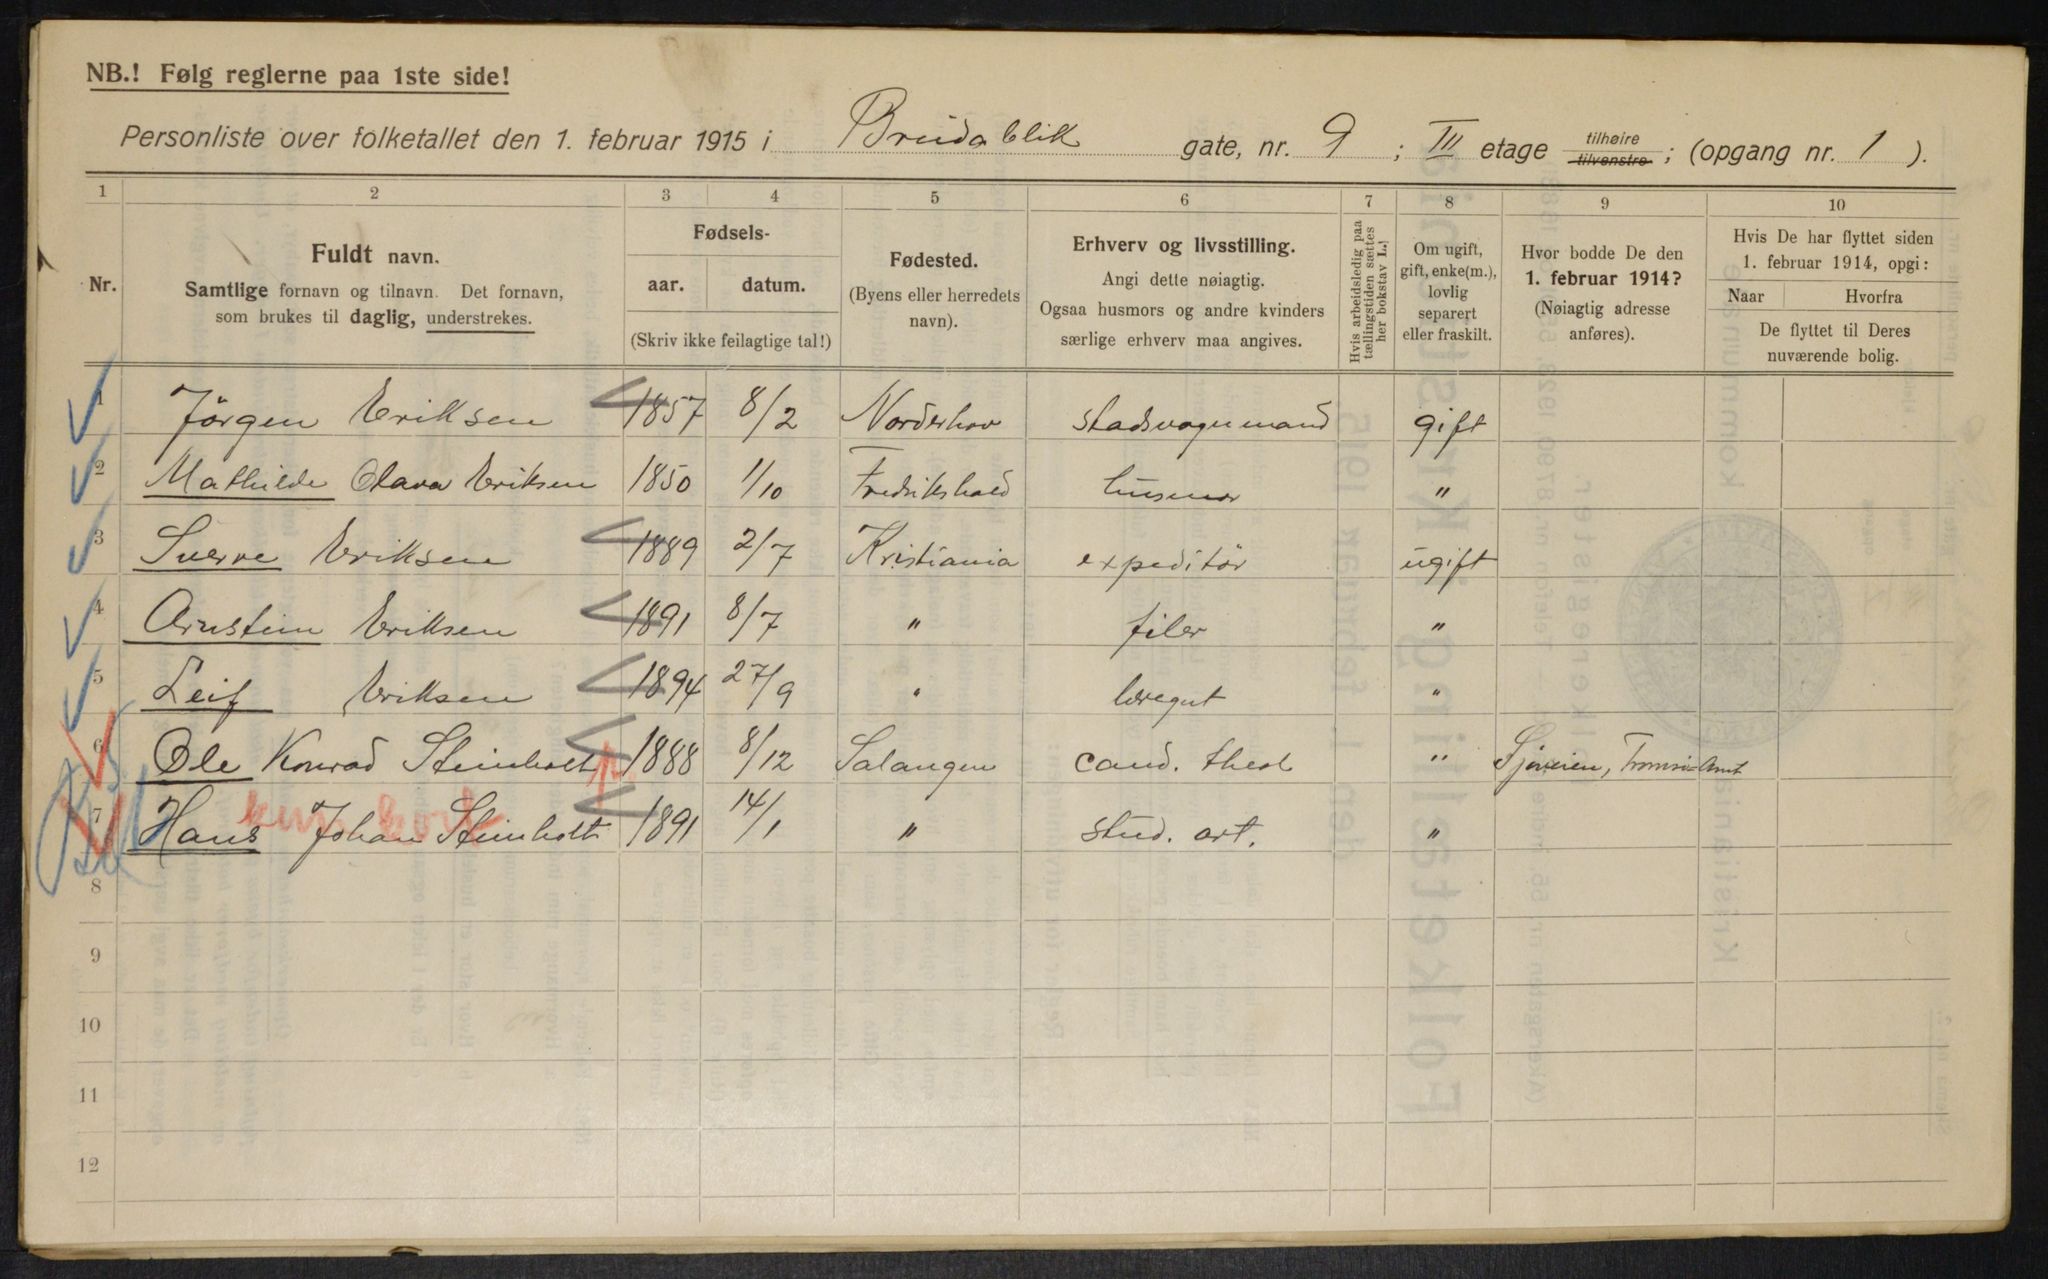 NB.! Følg reglerne paa 1ste side!
Personliste over folketallet den 1. februar 1915 i Breidablik gate, nr. 9 ; III etage tilhøire tilvenstre ; (opgang nr. 1 ).
1 2 3 4 5 6 7 8 9 10
Nr.
Fuldt navn.
Samtlige fornavn og tilnavn. Det fornavn,
som brukes til daglig, understrekes.
Fødsels-
aar. datum.
(Skriv ikke feilagtige tal!)
Fødested.
(Byens eller herredets
navn).
Erhverv og livsstilling.
Angi dette nøiagtig.
Ogsaa husmors og andre kvinders
særlige erhverv maa angives.
Hvis arbeidsledig paa
tællingstiden sættes
her bokstav L.!
Om ugift,
gift, enke(m.),
lovlig
separert
eller fraskilt.
Hvor bodde De den
1. februar 1914?
(Nøiagtig adresse
anføres).
Hvis De har flyttet siden
1. februar 1914, opgi:
Naar Hvorfra
De flyttet til Deres
nuværende bolig.
1 Jörgen Eriksen 1857 8/2 Norderhov stadsvognmand gift
2 Mathilde Olava Eriksen 1850 1/10 Fredrikshald husmor "
3 Sverre Eriksen 1889 2/7 Kristiania expeditör ugift
4 Arnstein Eriksen 1891 8/7 " filer "
5 Leif Eriksen 1894 27/9 " læregut "
6 Ole Konrad Steinholt 1888 8/12 Salangen cand. theol " Sjøveien, Tromsø Amt
7 Hans Johan Steinholt 1891 14/1 " stud. art. "
8
9
10
11
12